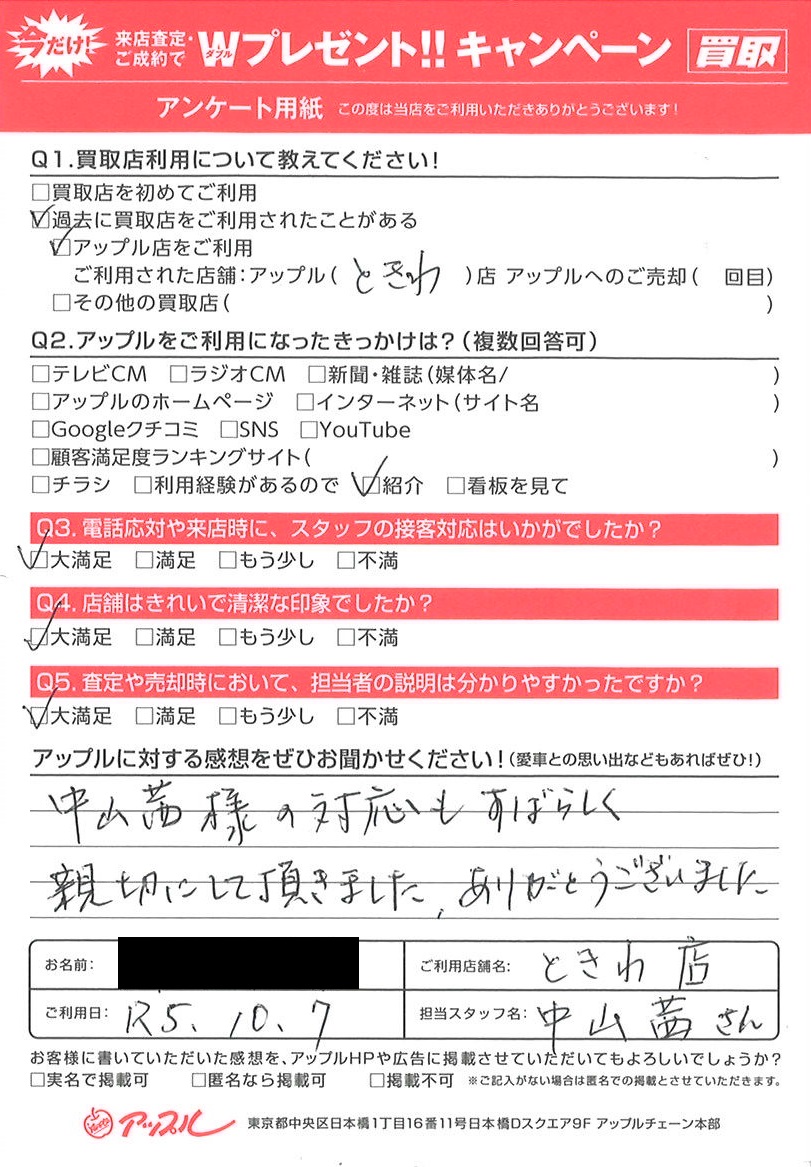 今だけ!
来店査定・
ご成約で
Wプレゼント!! キャンペーン 買取
ダブル
アンケート用紙 この度は当店をご利用いただきありがとうございます!
Q1.買取店利用について教えてください!
□買取店を初めてご利用
☑過去に買取店をご利用されたことがある
☑アップル店をご利用
ご利用された店舗:アップル( ときわ )店 アップルへのご売却( 回目)
□その他の買取店( )
Q2.アップルをご利用になったきっかけは?(複数回答可)
□テレビCM □ラジオCM □新聞・雑誌(媒体名/ )
□アップルのホームページ □インターネット(サイト名 )
□Googleクチコミ □SNS □YouTube
□顧客満足度ランキングサイト( )
□チラシ □利用経験があるので ☑紹介 □看板を見て
Q3.電話応対や来店時に、スタッフの接客対応はいかがでしたか?
☑大満足 □満足 □もう少し □不満
Q4.店舗はきれいで清潔な印象でしたか?
☑大満足 □満足 □もう少し □不満
Q5.査定や売却時において、担当者の説明は分かりやすかったですか?
☑大満足 □満足 □もう少し □不満
アップルに対する感想をぜひお聞かせください!(愛車との思い出などもあればぜひ!)
中山茜様の対応もすばらしく
親切にして頂きました、ありがとうございました
お名前: ご利用店舗名: ときわ店
ご利用日: R5.10.7 担当スタッフ名: 中山茜さん
お客様に書いていただいた感想を、アップルHPや広告に掲載させていただいてもよろしいでしょうか?
□実名で掲載可 □匿名なら掲載可 □掲載不可 ※ご記入がない場合は匿名での掲載とさせていただきます。
アップル 東京都中央区日本橋1丁目16番11号日本橋Dスクエア9F アップルチェーン本部